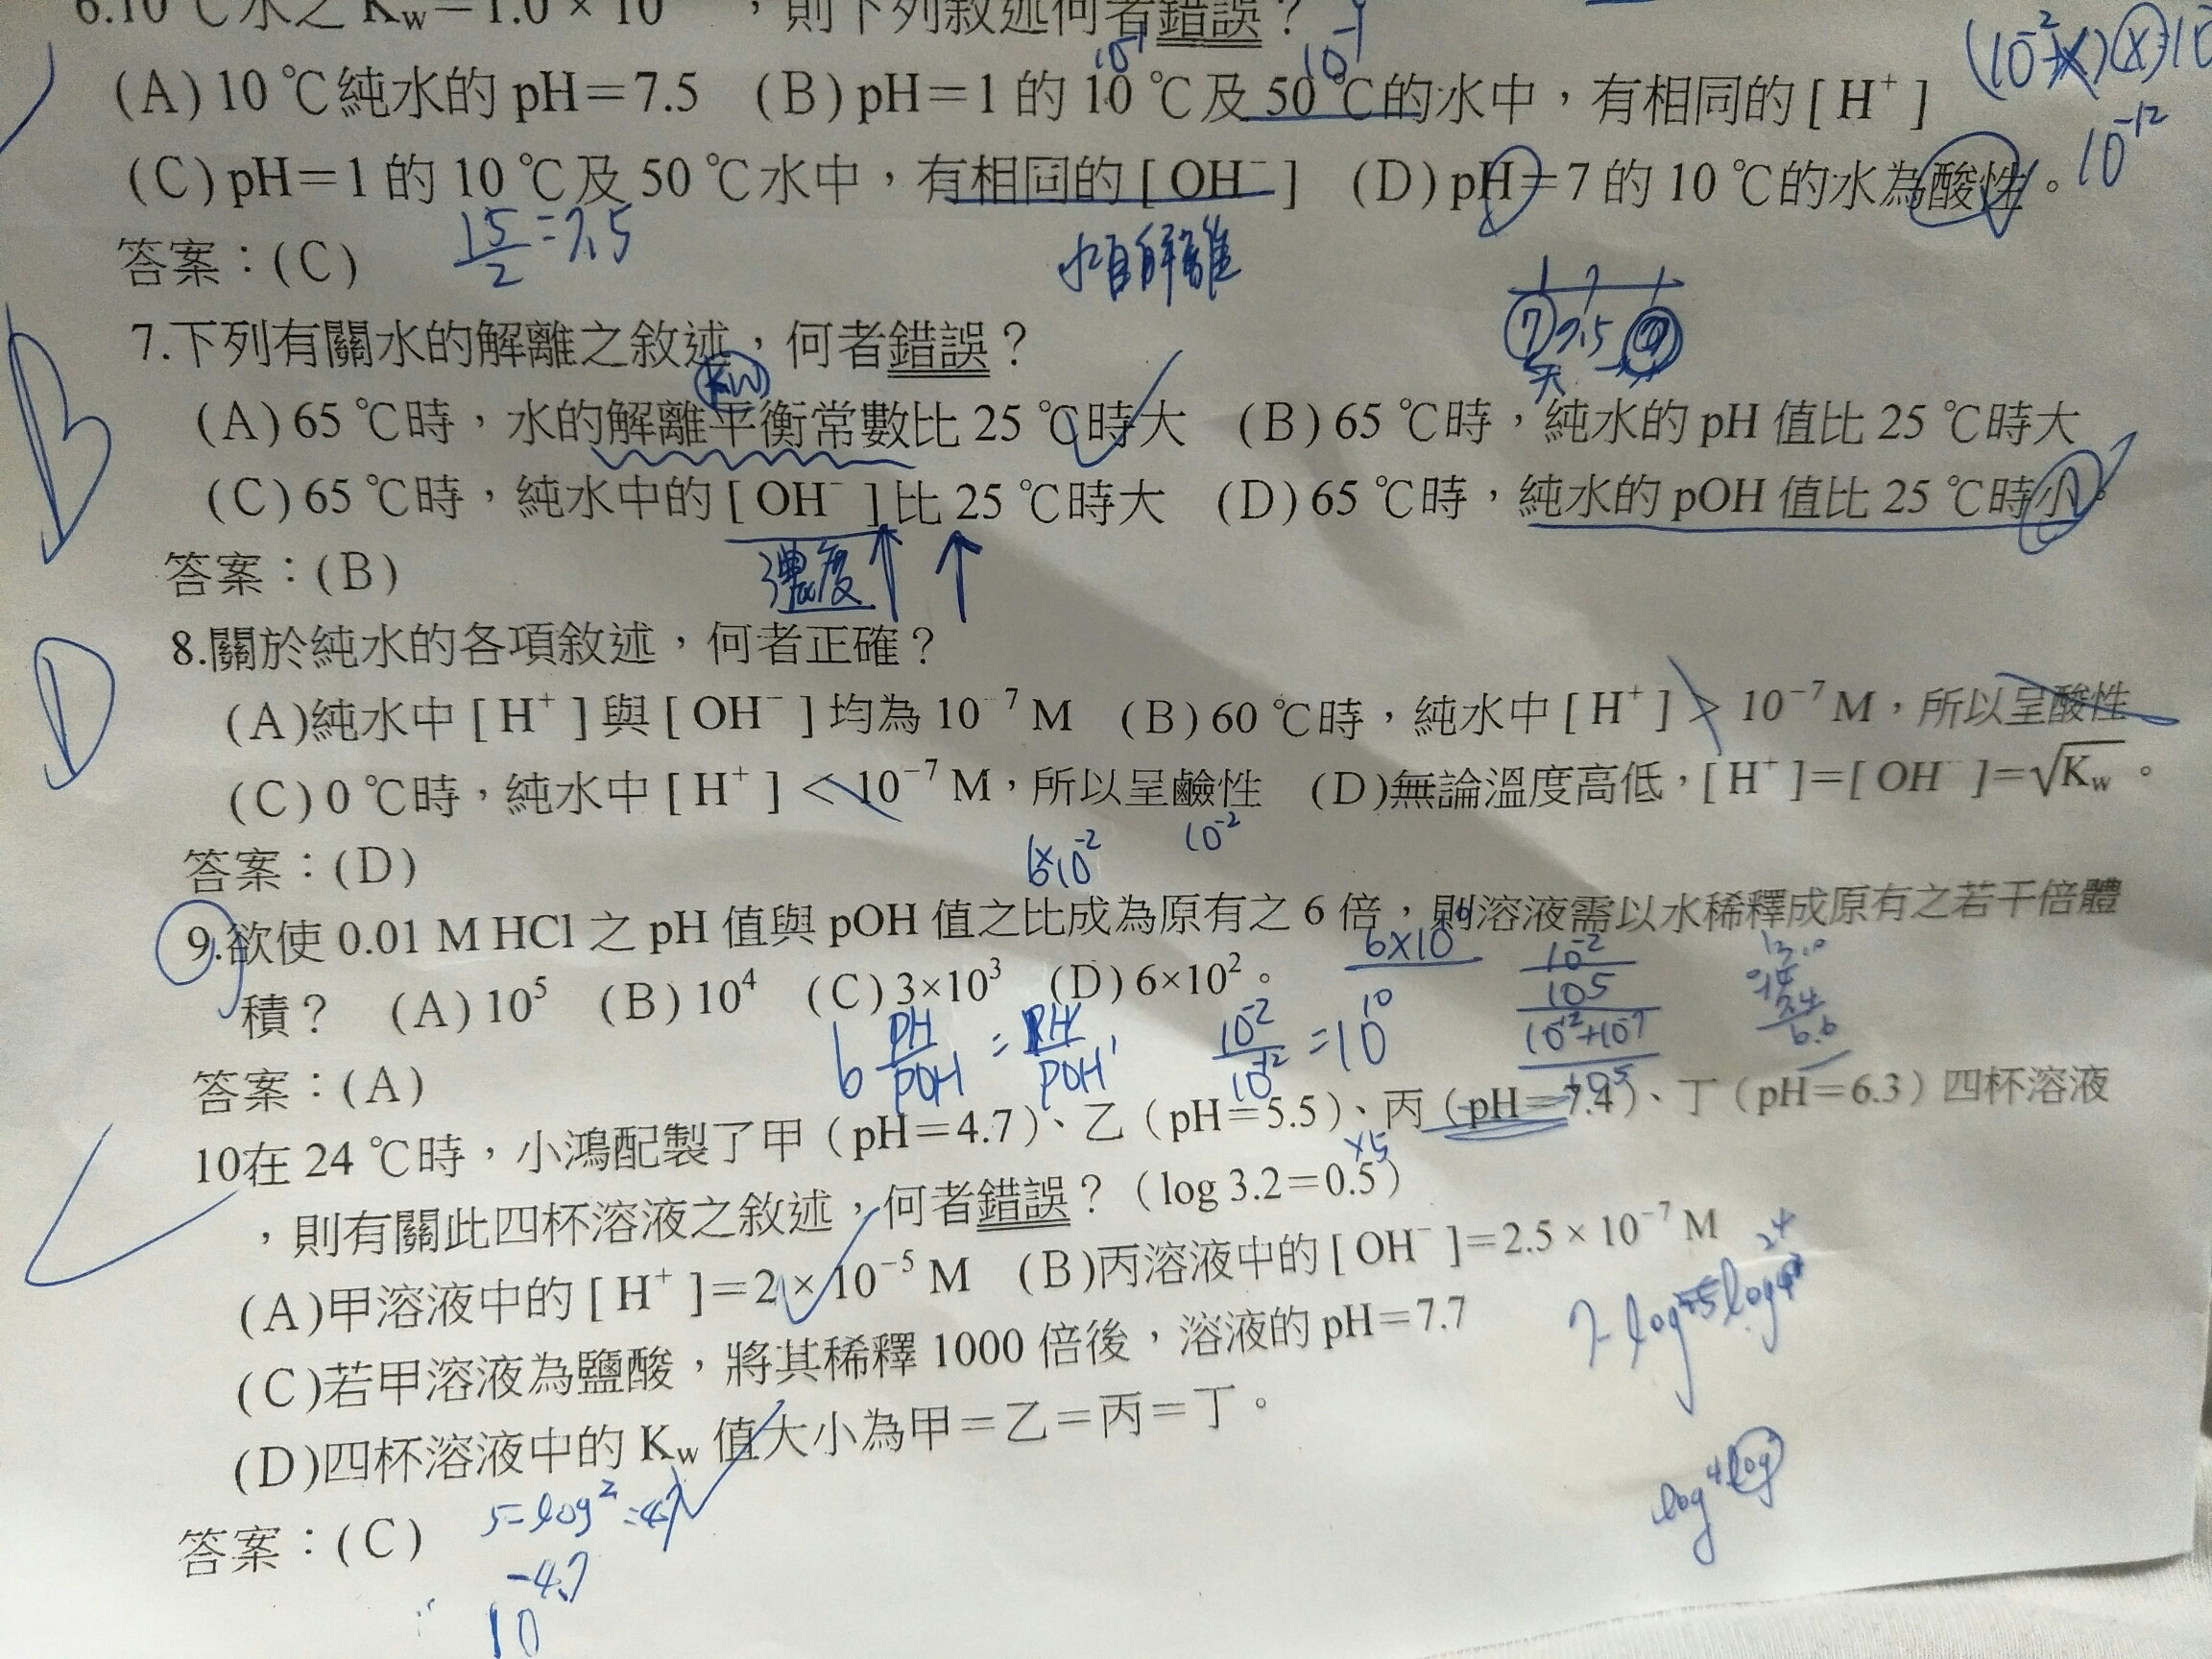 6.10 ℃水之 Kw=1.0×10 ，則下列敘述何者錯誤？
10⁻¹ 10⁻¹
(A)10 ℃純水的 pH=7.5 (B)pH=1 的 10 ℃及 50 ℃的水中，有相同的[H⁺]
10⁻¹²
(C)pH=1 的 10 ℃及 50 ℃水中，有相同的[OH⁻] (D)pH=7 的 10 ℃的水為酸性。
答案：(C) 15/2=7.5 水自解離
7.下列有關水的解離之敘述，何者錯誤？
Kw
(A)65 ℃時，水的解離平衡常數比 25 ℃時大 (B)65 ℃時，純水的 pH 值比 25 ℃時大
(C)65 ℃時，純水中的[OH⁻]比 25 ℃時大 (D)65 ℃時，純水的 pOH 值比 25 ℃時小。
B
答案：(B) 濃度↑ ↑
8.關於純水的各項敘述，何者正確？
(A)純水中[H⁺]與[OH⁻]均為 10⁻⁷ M (B)60 ℃時，純水中[H⁺]> 10⁻⁷ M，所以呈酸性
D
(C)0 ℃時，純水中[H⁺]<10⁻⁷ M，所以呈鹼性 (D)無論溫度高低，[H⁺]=[OH⁻]=√Kw。
答案：(D) 6×10⁻² 10⁻²
9.欲使 0.01 M HCl 之 pH 值與 pOH 值之比成為原有之 6 倍，則溶液需以水稀釋成原有之若干倍體
積？ (A)10⁵ (B)10⁴ (C)3×10³ (D)6×10²。
6 pH/pOH = pH'/pOH' 10⁻²/10⁻¹²=10¹⁰
答案：(A)
10在 24 ℃時，小鴻配製了甲（pH=4.7）、乙（pH=5.5）、丙（pH=7.4）、丁（pH=6.3）四杯溶液
，則有關此四杯溶液之敘述，何者錯誤？（log 3.2=0.5）
(A)甲溶液中的[H⁺]=2×10⁻⁵ M (B)丙溶液中的[OH⁻]=2.5×10⁻⁷ M
(C)若甲溶液為鹽酸，將其稀釋 1000 倍後，溶液的 pH=7.7
(D)四杯溶液中的 Kw 值大小為甲=乙=丙=丁。
5-log2=4.7
答案：(C)
10⁻⁴·⁷